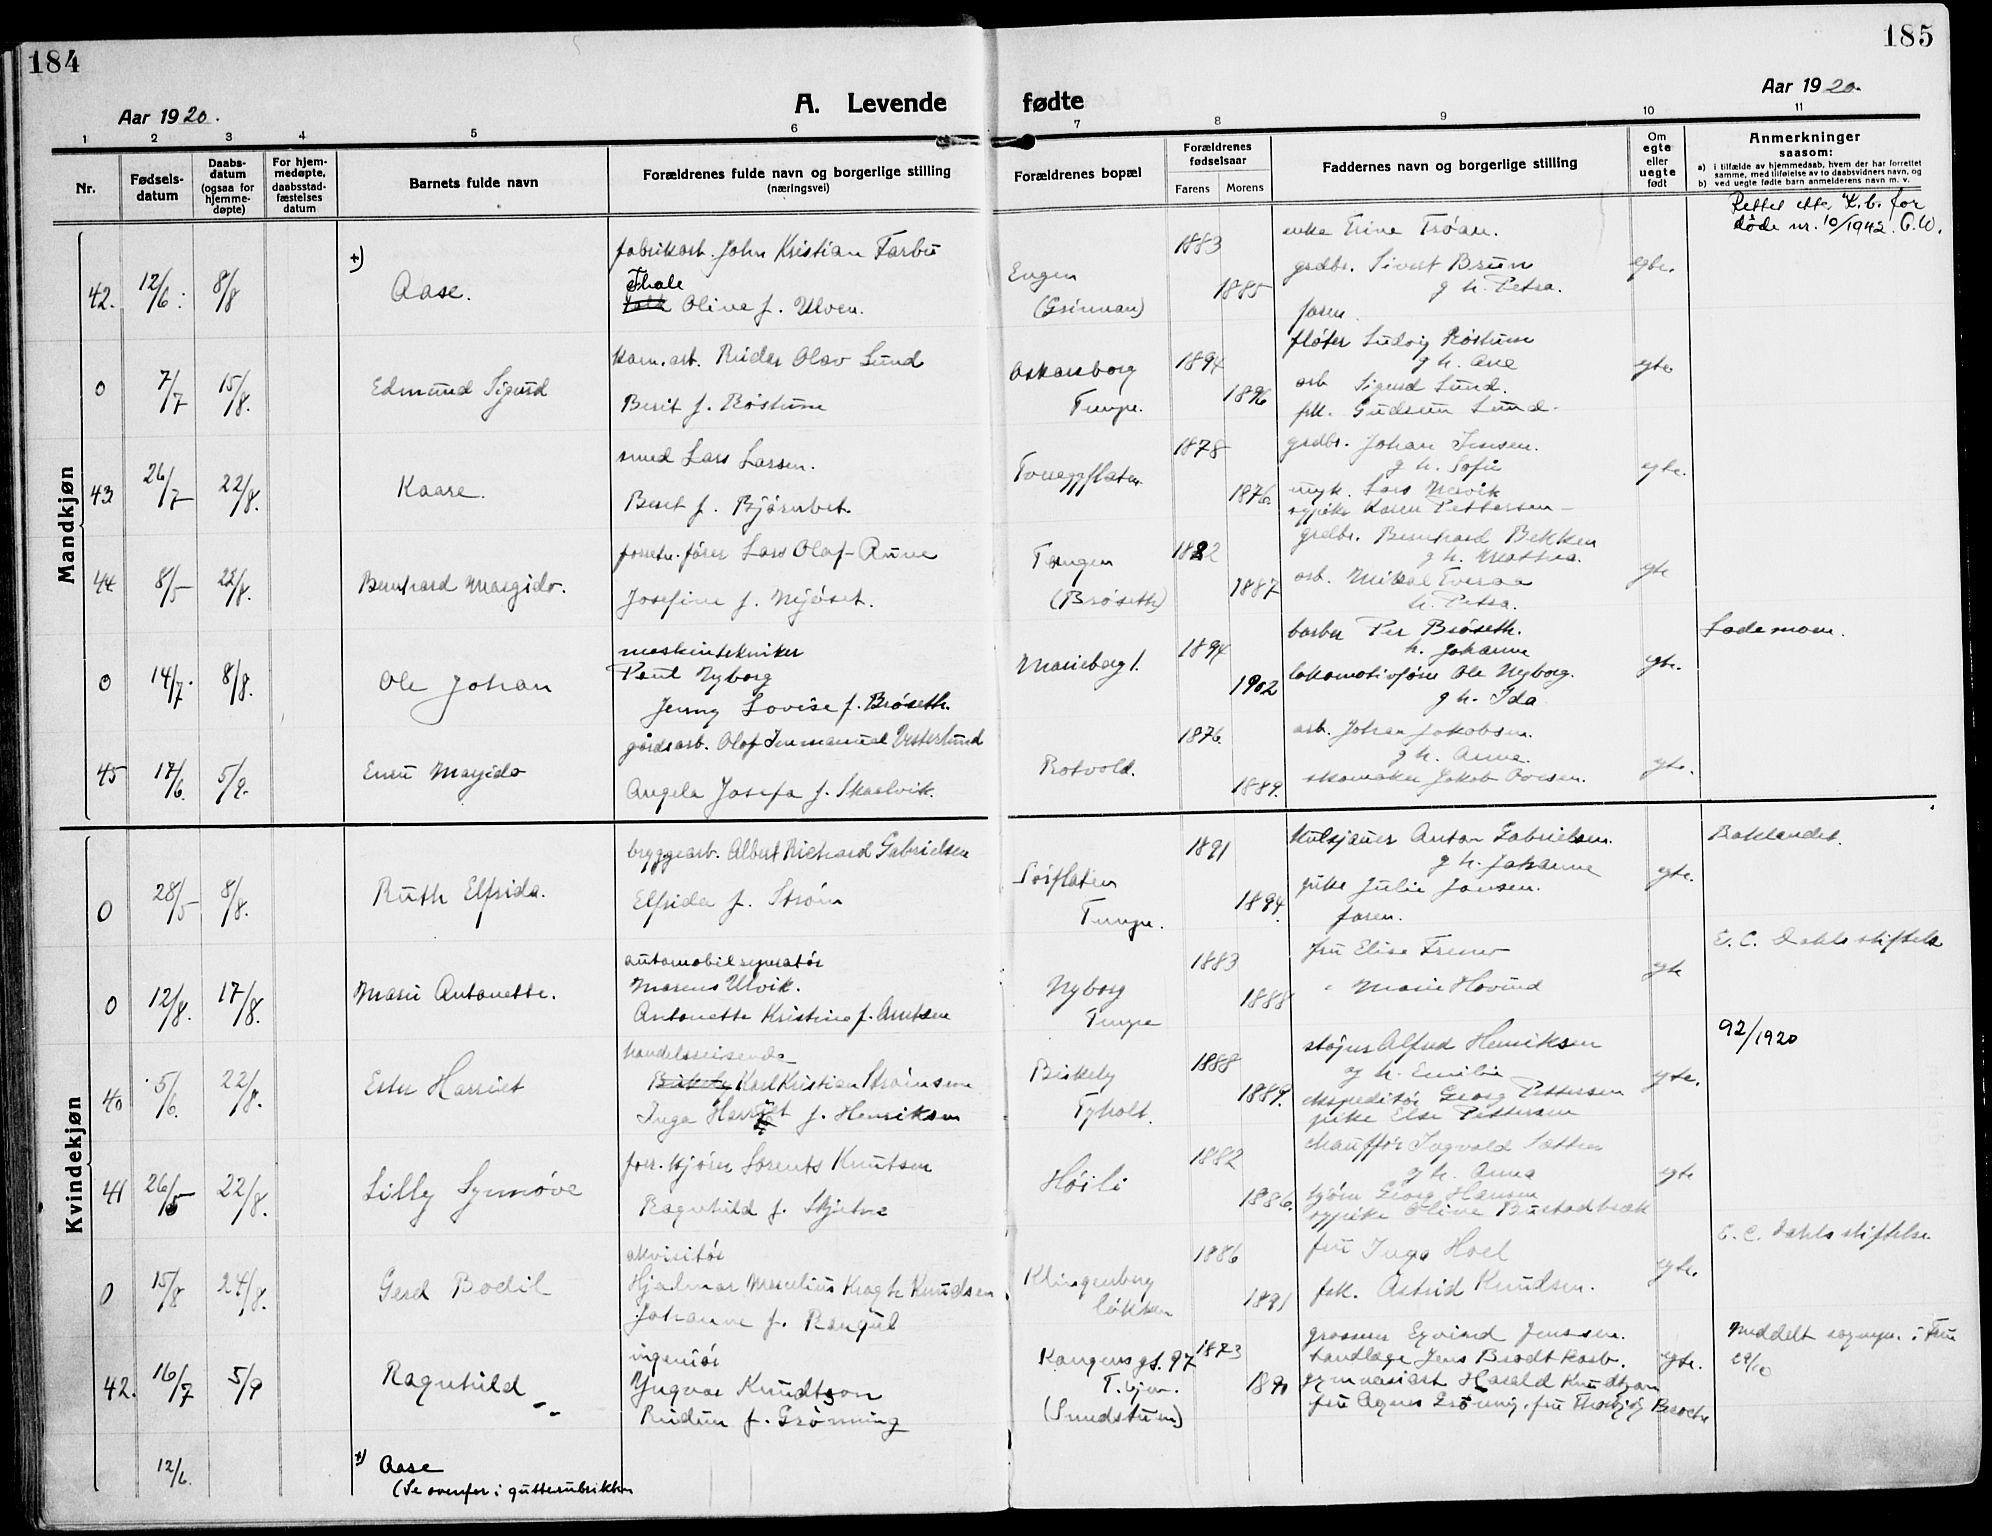 184
185
Aar 1920.
A. Levende fødte
Aar 1920.
1 2 3 4 5 6 7 8 9 10 11
Nr.
Fødsels-
datum
Daabs-
datum
(ogsaa for
hjemme-
døpte)
For hjem-
medøpte,
daabsstad-
fæstelses
datum
Barnets fulde navn
Forældrenes fulde navn og borgerlige stilling
(næringsvei)
Forældrenes bopæl
Forældrenes
fødselsaar
Farens Morens
Faddernes navn og borgerlige stilling
Om
egte
eller
uegte
født
Anmerkninger
saasom:
a) i tilfælde av hjemmedaab, hvem der har forrettet
samme, med tilføielse av to daabsvidners navn, og
b) ved uegte fødte barn anmelderens navn m. v.
Mandkjøn
42. 12/6 8/8 +) Aase.
fabrikarb. John Kristian Farbu
Thale
Olive f. Ulven.
Engen
(Grinnan)
1883 1885
enke Trine Trøan.
grdbr. Sivert Brun
g h. Petra.
faren.
egte.
Rettet etter K.b. for
døde nr. 10/1942. C.W.
0 7/7 15/8. Edmund Sigurd
korn.arb. Reidar Olav Lund
Berit f. Røstum
Oskarsborg
Tempe.
1894 1896
fløter Ludvig Røstum
g h. Ane
arb. Sigurd Lund.
frk. Gudrun Lund.
egte
43 26/7 22/8. Kaare.
smed Lars Larsen.
Beret f. Bjørnbet.
Torveggflaten
1878 1876.
grdbr. Johan Jensen.
g h. Sofie
ungk. Lars Mervik
sypike Karen Pettersen
egte.
44 8/5 22/8. Bernhard Margido.
forretn.fører Lars Olaf Aune
Josefine f. Mjøset.
Tangen
(Brøseth)
1882 1887
grdbr. Bernhard Bekken
g h. Mattea.
arb. Mikal Tveraa
h. Petra.
egte
0 14/7. 8/8. Ole Johan
maskintekniker
Paul Nyborg
Jenny Lovise f. Brøseth.
Marieborg
1894 1902
barber Per Brøseth.
h. Johanne
lokomotivfører Ole Nyborg.
g h. Ida
egte.
Lademoen.
45 17/6. 5/9. Einu Margido
gårdsarb. Olaf Immanuel Vesterlund
Angela Josefa f. Skaalvik.
Rotvold.
1876. 1889.
arb. Johan Jakobsen.
g h. Anna.
skomaker Jakob Ovesen.
egte.
Kvindekjøn
0 28/5 8/8. Ruth Elfrida.
bryggearb. Albert Richard Gabrielsen
Elfrida f. Strøm
Sørflaten
Tempe.
1891 1894.
kulsjauer Anton Gabrielsen.
g h. Johanne
pike Julie Jansen.
faren.
egte.
Baklandet.
0 12/8. 17/8. Marie Antonette.
automobilreparatør
Marens Ulvik.
Antonette Kristine f. Arntsen
Nyborg
Tempe
1883 1888
fru Elise
" Marie Hovind
egte
E. C. Dahls stiftelse
40 5/6. 22/8. Ester Harriet
handelsreisende
Karl Kristian Strømsem
Inga Harriet f. Henriksen
Birkeby
Tyholt.
1888 1889.
støper Alfred Henriksen
og h. Emilie
ekspeditør Georg Pettersen
pike Else Pettersen
egte.
92/1920
41 26/5 22/8. Lilly Synnøve
forr. kjører Lorents Knutsen
Ragnhild f. Skjetne
Høili
1882 1886.
chauffør Ingvald Sættem
g h. Anna
kjører Georg Hansen
sypike Oline Bustadbæk
egte
0 15/8 24/8. Gerd Bodil
akvisitør
Hjalmar Marcelius Kragh Knudsen
Johanne f. Rangul
Klingenberg
løkken
1886 1891
fru Inga Hoel
frk. Astrid Knudsen.
egte.
E. C. Dahls stiftelse
42. 16/7 5/9 Ragnhild
ingeniør
Yngvar Knudtzon
Reidun f. Grønning
Kongensgt. 97
T.hjem.
(Sundstuen)
1873 1890
grosserer Eyvind Jenssen.
tandlæge Jens Brodtkorb.
gymnasiast Harald Knudtzon
fru Agnes Grønning, fru Thorbjørg Brodtk
egte.
Meddelt sognepr. i Frue
29/10
12/6. +) Aase
(Se ovenfor i gutterubrikken